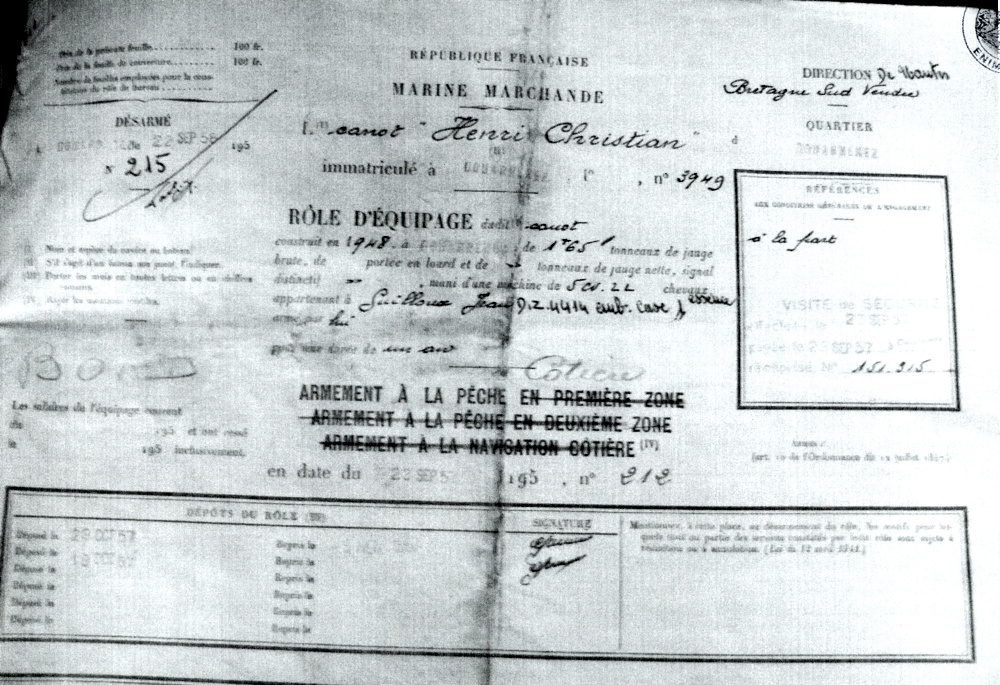 Prix de la présente feuille............ 100 fr.
Prix de la feuille de couverture........ 100 fr.
Nombre de feuilles employées pour la cons-
titution du rôle de
DÉSARMÉ
22 SEP 195
N° 215
RÉPUBLIQUE FRANÇAISE
MARINE MARCHANDE
canot "Henri Christian" à
immatriculé à DOUARNENEZ, n° 3949
RÔLE D'ÉQUIPAGE dudit canot
construit en 1948 à DOUARNENEZ, de 1T65 tonneaux de jauge
brute, de portée en lourd et de tonneaux de jauge nette, signal
distinctif muni d'une machine de 5 cv. 22 chevaux
essence
appartenant à Guilloux Jean DZ. 4414 emb. case
armé par lui
pour une durée de un an
Côtière
ARMEMENT À LA PÊCHE EN PREMIÈRE ZONE
ARMEMENT À LA PÊCHE EN DEUXIÈME ZONE
ARMEMENT À LA NAVIGATION CÔTIÈRE (IV)
en date du 23 SEP 57 195 , n° 212
DIRECTION De Nantes
Bretagne Sud Vendée
QUARTIER
DOUARNENEZ
RÉFÉRENCES
AUX CONDITIONS GÉNÉRALES DE L'ENGAGEMENT
à la part
VISITE de SÉCURITÉ
23 SEP 57
23 SEP 57 à
151.915
ENIM
Nom et espèce du navire ou bateau.
S'il s'agit d'un bateau non ponté, l'indiquer.
Porter les mois en toutes lettres ou en chiffres
romains.
(IV) Rayer les mentions inutiles.
BORD
Les salaires de l'équipage courent
du 195 et ont cessé
le 195 inclusivement.
(art. 10 de l'Ordonnance du
DÉPÔTS DU RÔLE
SIGNATURE
Déposé le 29 OCT 57 Repris le
Déposé le 18 OCT 57 Repris le
Déposé le Repris le
Déposé le Repris le
Déposé le Repris le
Déposé le Repris le
Mentionner, à cette place, au désarmement du rôle, les motifs pour les-
quels tout ou partie des services constatés par ledit rôle sont sujets à
réduction ou à annulation. (Loi du 12 avril 1941.)